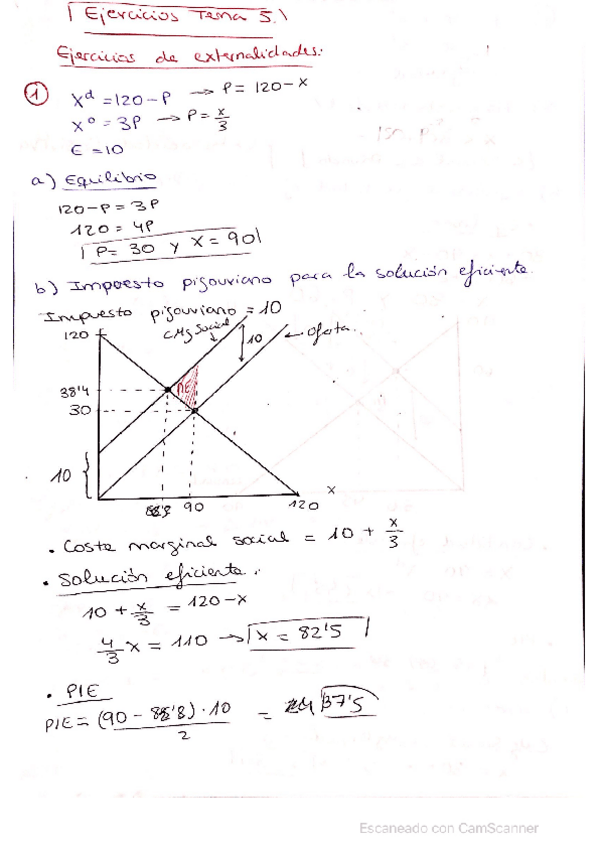 Ejercicios Tema 5.
Ejercicios de externalidades:
① Xᵈ = 120 - P → P = 120 - X
X⁰ = 3P → P = X/3
E = 10
a) Equilibrio
120 - P = 3P
120 = 4P
P = 30 y X = 90
b) Impuesto pigouviano para la solución eficiente.
Impuesto pigouviano = 10
120
CMg social
10
← oferta
38'4
PIE
30
10
90
120
X
• Coste marginal social = 10 + X/3
• Solución eficiente:
10 + X/3 = 120 - X
4/3 X = 110 → X = 82'5
• PIE
PIE = (90 - ) · 10 / 2 = 37'5
Escaneado con CamScanner